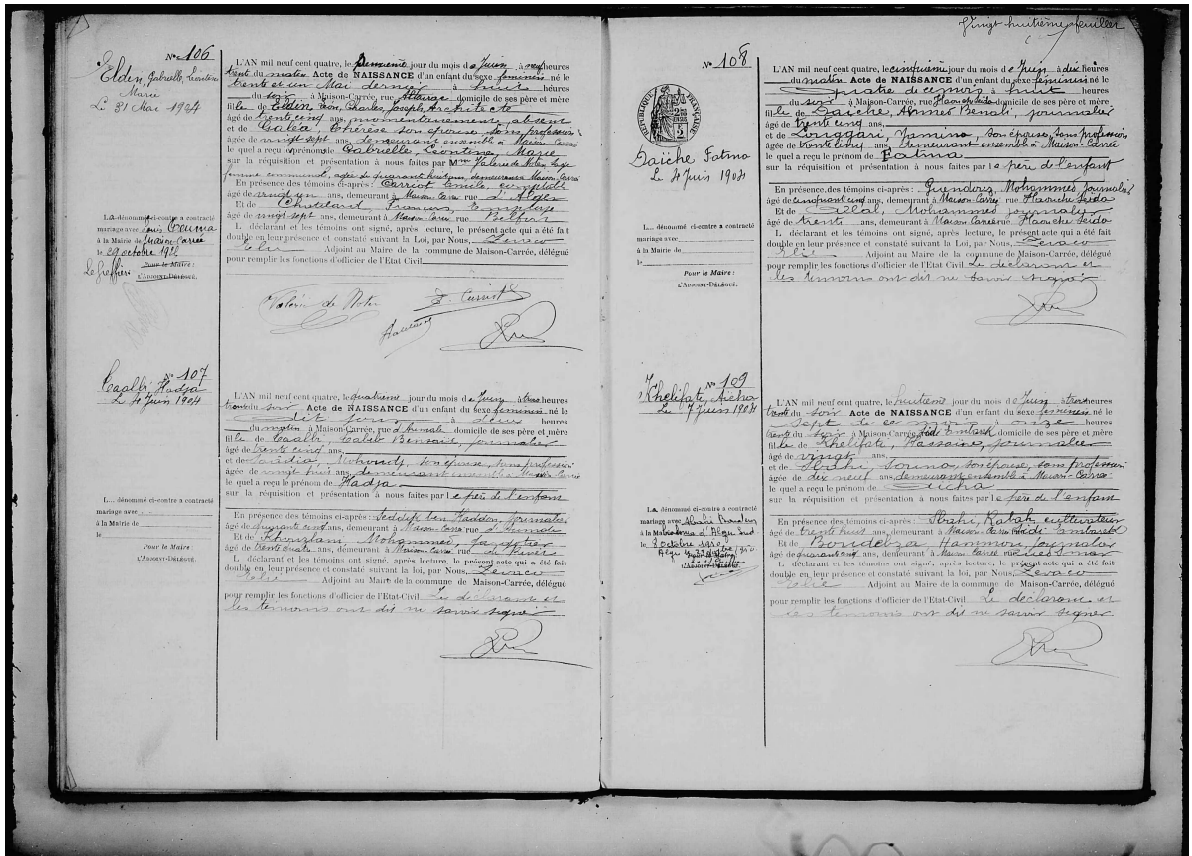 Vingt huitième feuillet
No 106
Elden, Gabrielle, Léontine
Marie
Le 31 Mai 1904
L'AN mil neuf cent quatre, le deuxième jour du mois de Juin, à neuf heures
trente du matin Acte de NAISSANCE d'un enfant du sexe féminin né le
trente et un Mai dernier à huit heures
du soir à Maison-Carrée, rue domicile de ses père et mère
fille de Elden, Léon, Charles, Joseph, Architecte
âgé de trente cinq ans, momentanément absent
et de Galéa, Thérèse son épouse, sans profession
âgée de vingt sept ans, demeurant ensemble à Maison Carrée
lequel a reçu le prénom de Gabrielle, Léontine, Marie
sur la réquisition et présentation à nous faites par Mme Valérie de Noter Sage
femme communale, agée de quarante huit ans, demeurant à Maison Carrée
En présence des témoins ci-après : Carriot Emile, comptable
âgé de vingt un ans, demeurant à Maison Carrée rue d'Alger
Et de Chatelard, François, Employé
âgé de vingt sept ans, demeurant à Maison Carrée rue Belfort
L déclarant et les témoins ont signé, après lecture, le présent acte qui a été fait
double en leur présence et constaté suivant la Loi, par Nous, Zevaco
Elie Adjoint au Maire de la commune de Maison-Carrée, délégué
pour remplir les fonctions d'officier de l'Etat Civil
Valérie de Noter
LA dénommé ci-contre a contracté
mariage avec Louis
à la Mairie de Maison-Carrée
le 29 octobre 1922
Le Greffier
Pour le Maire :
L'ADJOINT-DÉLÉGUÉ.
No 107
Caalbi Hadja
Le 4 Juin 1904
L'AN mil neuf cent quatre, le quatrième jour du mois de Juin à trois heures
trente du soir Acte de NAISSANCE d'un enfant du sexe féminin né le
dit jour à deux heures
du matin à Maison-Carrée, rue d'Aumale domicile de ses père et mère
fille de Caalbi, Cabib Bensaid, journalier
âgé de trente cinq ans,
et de Saâdia, son épouse, sans profession
âgée de vingt huit ans, demeurant ensemble à Maison Carrée
lequel a reçu le prénom de Hadja
sur la réquisition et présentation à nous faites par le père de l'enfant
En présence des témoins ci-après : Seddik ben Hadden, journalier
âgé de quarante cinq ans, demeurant à Maison-Carrée rue d'Aumale
Et de Khouzlam Mohammed
âgé de trente quatre ans, demeurant à Maison-Carrée rue de Rivière
L déclarant et les témoins ont signé, après lecture, le présent acte qui a été fait
double en leur présence et constaté suivant la Loi, par Nous, Zevaco
Elie Adjoint au Maire de la commune de Maison-Carrée, délégué
pour remplir les fonctions d'officier de l'Etat-Civil Le déclarant et
les témoins ont dit ne savoir signer
L... dénommé ci-contre a contracté
mariage avec
à la Mairie de
le
Pour le Maire :
L'ADJOINT-DÉLÉGUÉ.
No 108
RÉPUBLIQUE FRANÇAISE
Daïche Fatma
Le 4 Juin 1904
L'AN mil neuf cent quatre, le cinquième jour du mois de Juin à dix heures
du matin Acte de NAISSANCE d'un enfant du sexe féminin né le
quatre de ce mois à huit heures
du soir à Maison-Carrée, rue Haouch Seïda domicile de ses père et mère
fille de Daïche, Ahmed Benali, journalier
âgé de trente cinq ans,
et de Longgari, Yamina, son épouse, sans profession
âgée de trente cinq ans, demeurant ensemble à Maison-Carrée
lequel a reçu le prénom de Fatma
sur la réquisition et présentation à nous faites par le père de l'enfant
En présence des témoins ci-après : Guendouz, Mohammed Journalier
âgé de cinquante cinq ans, demeurant à Maison-Carrée rue Haouch Seïda
Et de Gillal, Mohammed journalier
âgé de trente ans, demeurant à Maison Carrée rue Haouch Seïda
L déclarant et les témoins ont signé, après lecture, le présent acte qui a été fait
double en leur présence et constaté suivant la Loi, par Nous, Zevaco
Elie Adjoint au Maire de la commune de Maison-Carrée, délégué
pour remplir les fonctions d'officier de l'Etat Civil Le déclarant et
les témoins ont dit ne savoir signer
L... dénommé ci-contre a contracté
mariage avec
à la Mairie de
le
Pour le Maire :
L'ADJOINT-DÉLÉGUÉ.
No 109
Khelifati, Aïcha
Le 7 Juin 1904
L'AN mil neuf cent quatre, le huitième jour du mois de Juin à trois heures
trente du soir Acte de NAISSANCE d'un enfant du sexe féminin né le
sept de ce mois à onze heures
trente du soir à Maison-Carrée, Sidi Embarek domicile de ses père et mère
fille de Khelifati, Hassaine, journalier
âgé de vingt ans,
et de Sbahi, Dorina, son épouse, sans profession
âgée de dix neuf ans, demeurant ensemble à Maison-Carrée
lequel a reçu le prénom de Aïcha
sur la réquisition et présentation à nous faites par le père de l'enfant
En présence des témoins ci-après : Sbahi, Rabah, cultivateur
âgé de trente huit ans, demeurant à Maison Carrée Sidi Embarek
Et de Bourdebza Hamman Journalier
âgé de quarante cinq ans, demeurant à Maison Carrée
L déclarant et les témoins ont signé, après lecture, le présent acte qui a été fait
double en leur présence et constaté suivant la Loi, par Nous, Zevaco
Elie Adjoint au Maire de la commune de Maison-Carrée, délégué
pour remplir les fonctions d'officier de l'Etat-Civil Le déclarant et
les témoins ont dit ne savoir signer
LA dénommé ci-contre a contracté
mariage avec
à la d'Alger Sud
le 8 octobre 1920